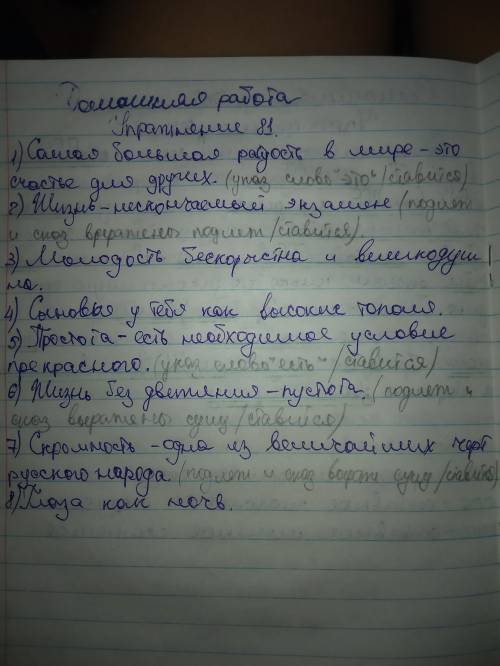 Домашняя работа
Упражнение 81.
1) Самая большая радость в мире - это
счастье для других. (указ слово "это"/ставится)
2) Жизнь - нескончаемый экзамен (подлеж
и сказ выражены подлеж/ставится).
3) Молодость бескорыстна и великодуш
на.
4) Сыновья у тебя как высокие тополя.
5) Простота - есть необходимое условие
прекрасного. (указ слово "есть"/ставится)
6) Жизнь без движения - пустота. (подлеж и
сказ выражены сущ/ставится)
7) Скромность - одна из величайших черт
русского народа. (подлеж и сказ выраж сущ/ставится)
8) Глаза как ночь.